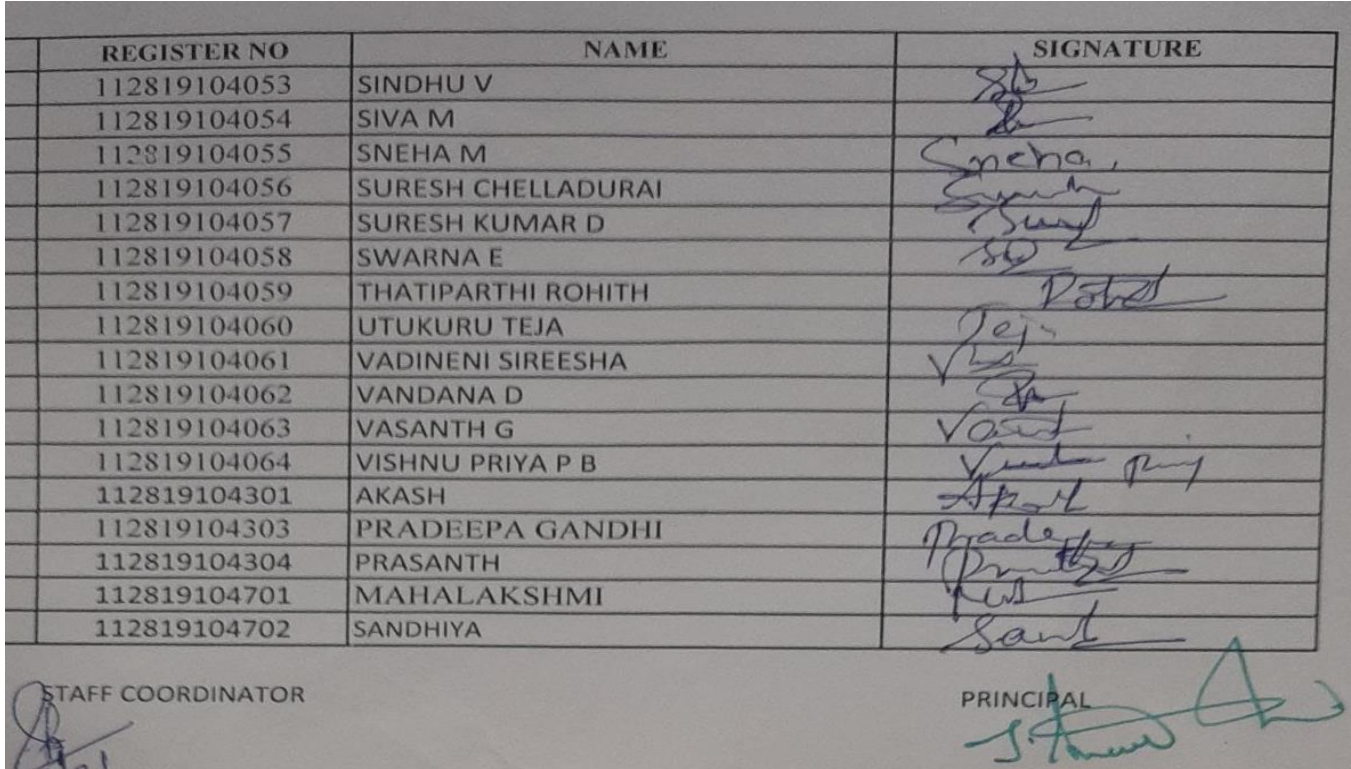 REGISTER NO NAME SIGNATURE
112819104053 SINDHU V
112819104054 SIVA M
112819104055 SNEHA M Sneha.
112819104056 SURESH CHELLADURAI
112819104057 SURESH KUMAR D
112819104058 SWARNA E
112819104059 THATIPARTHI ROHITH
112819104060 UTUKURU TEJA Teja
112819104061 VADINENI SIREESHA
112819104062 VANDANA D
112819104063 VASANTH G
112819104064 VISHNU PRIYA P B
112819104301 AKASH
112819104303 PRADEEPA GANDHI
112819104304 PRASANTH
112819104701 MAHALAKSHMI
112819104702 SANDHIYA
STAFF COORDINATOR PRINCIPAL